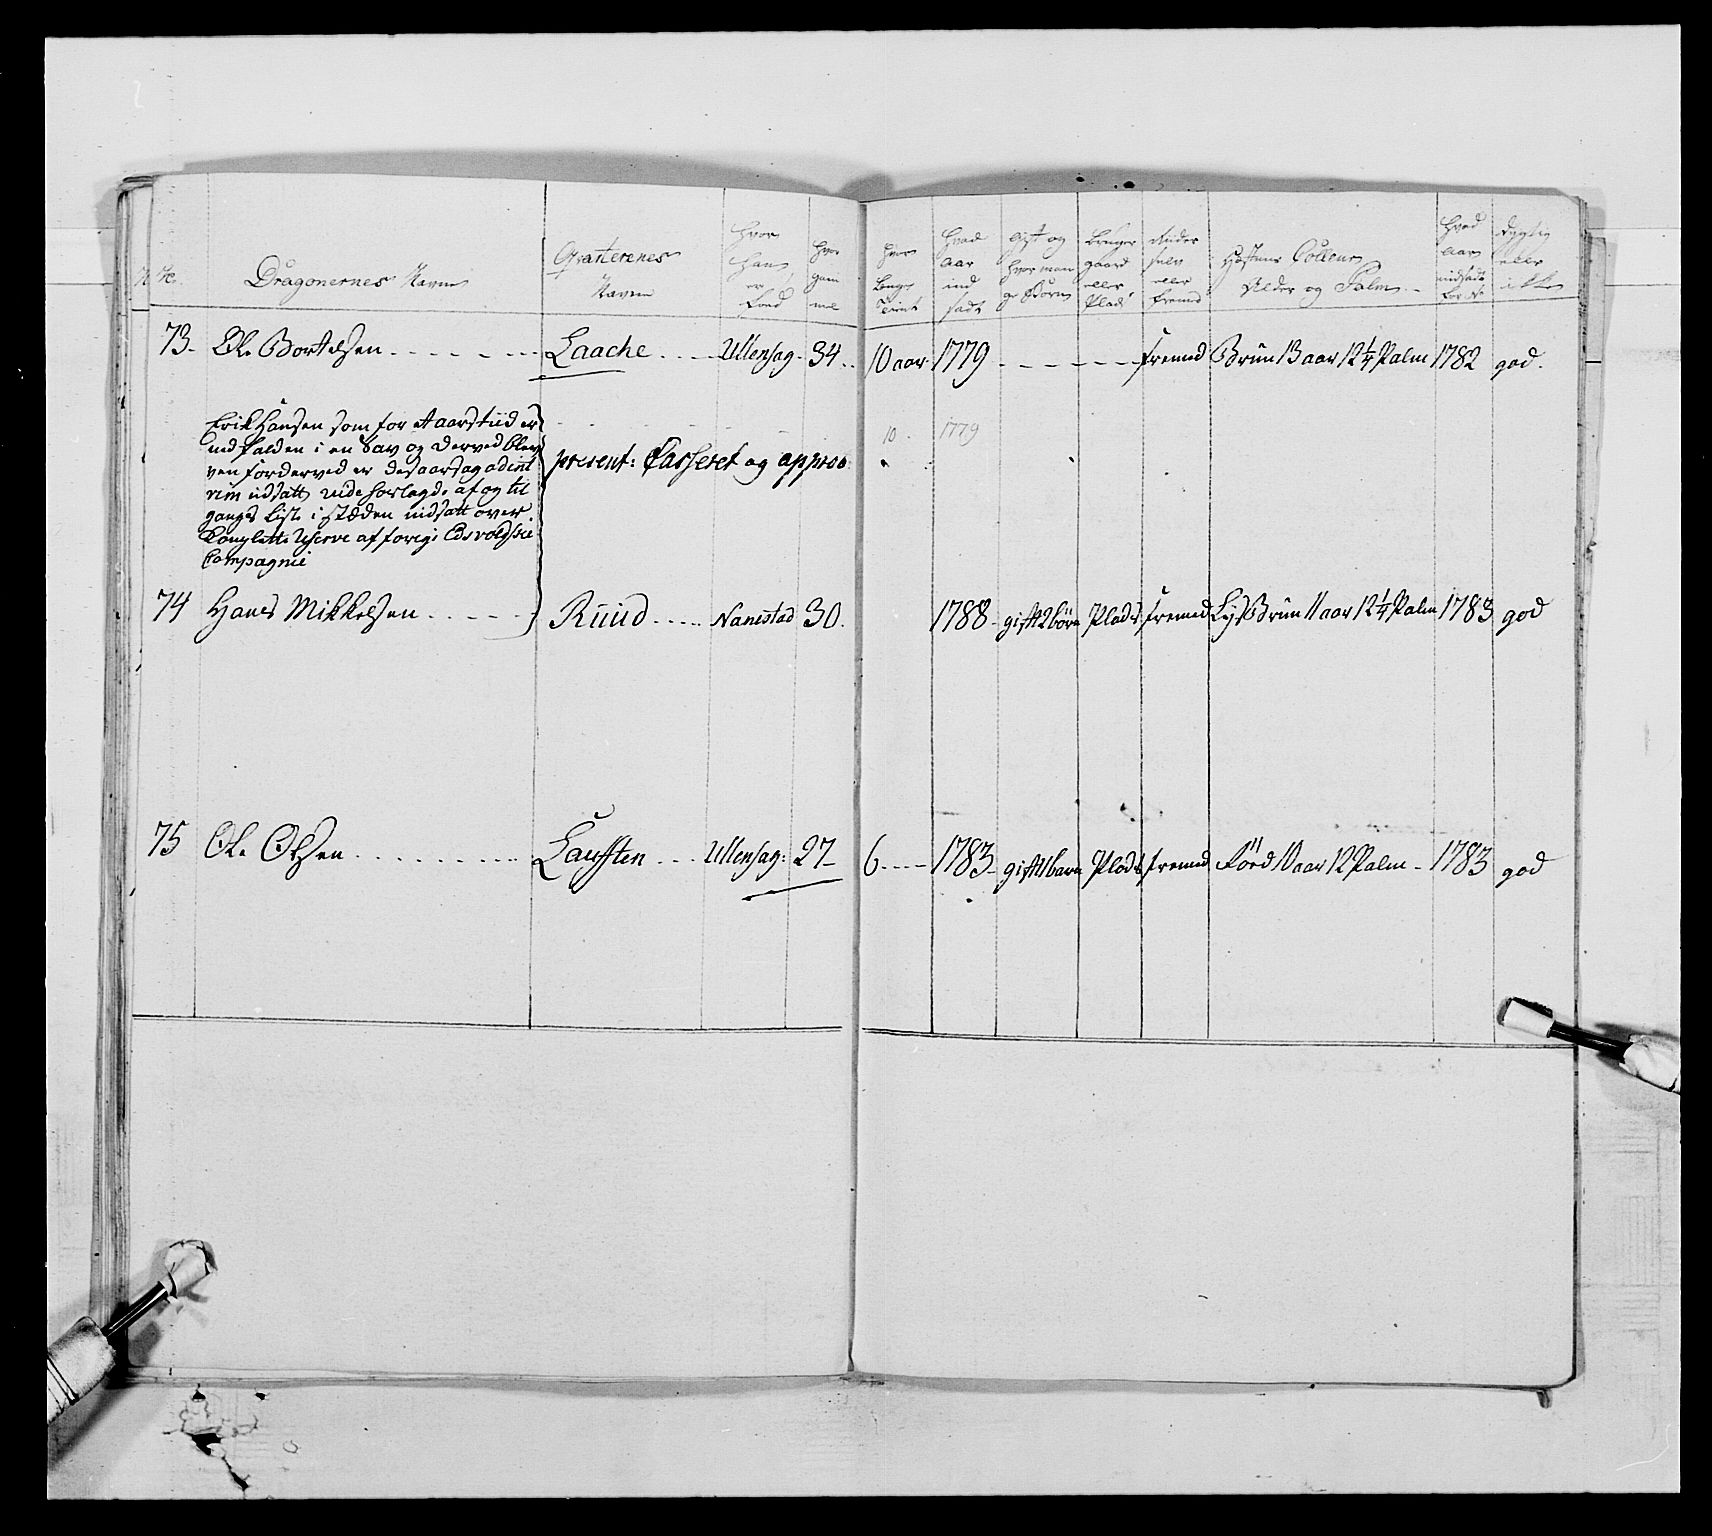 No
Dragonernes Navne
Qvarterenes Navne
Hvor han er Fød
Hvor gam mel
Hvor længe Tient
Hvad aar ind sadt
Gift og hvor man ge Børn
Bruger gaard eller Plads
Rider selv eller fremd
Hæstens Colleur Alder og Palm
Hvad aar indsadt for No
Dygtig eller ikke
73. Ole Bortelsen Laache Ullensag. 34. 10 aar 1779 fremd Brun 13 aar 12 1/4 Palm 1782 god.
Erik Hansen som for et aarstiid er
nedfalden i en Sav og derved blev
ven forderved er des aarsag ad int
rim udsatt vide forlagde af og til
gangs Liste i stæden indsatt over
Complette Reserve af forige Edsvoldske
Compagnie
present: Casseret og approb
10 1779
74 Hans Mikkelsen Ruud Nanestad 30. 1788 gift 2 børn Plads fremd Lys Brun 11 aar 12 1/4 Palm 1783 god
75 Ole Olsen Laufsten Ullensag: 27 6 1783 gift 1 barn Plads fremd Røed 10 aar 12 Palm 1783 god